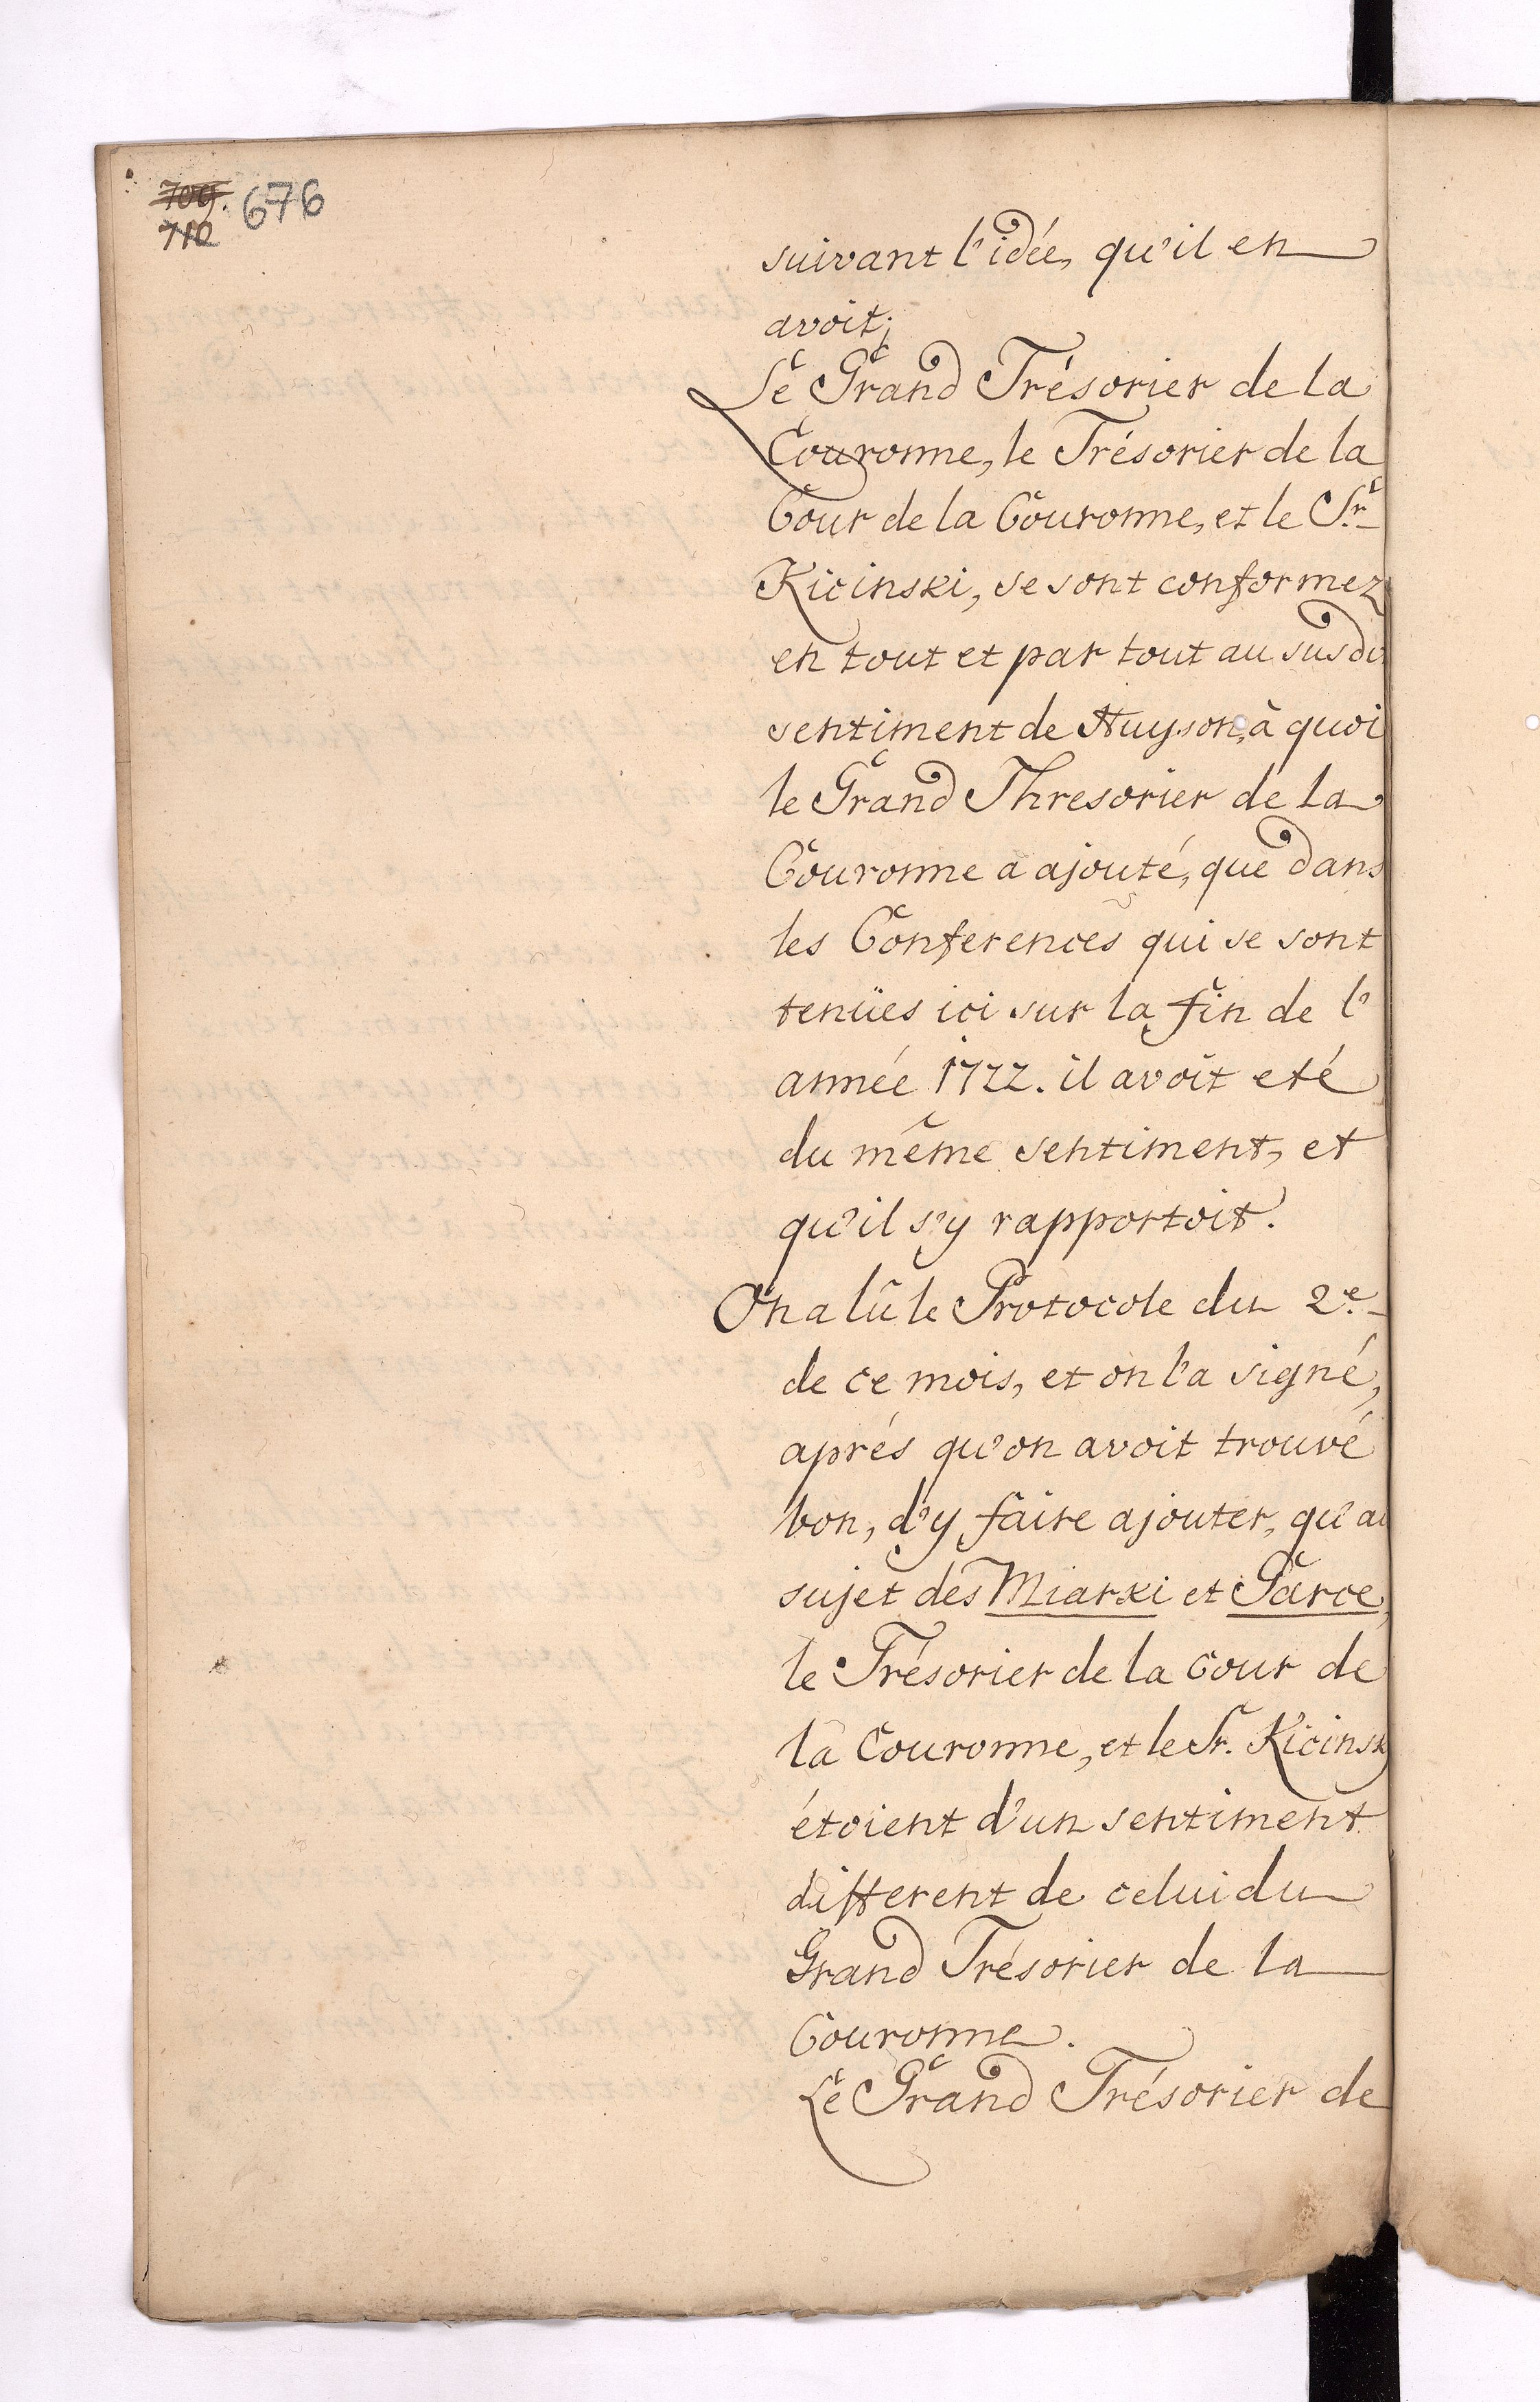 709. 676
710
suivant l'idée, qu'il en
avoit;
Le Grand Trésorier de la
Couronne, le Trésorier de la
Cour de la Couronne, et le Sr.
Kicinski, se sont conformez
en tout et par tout au susdi
sentiment de Huyson, à quoi
le Grand Thresorier de la
Couronne a ajouté, que dans
les Conferences qui se sont
tenües ici sur la fin de l'
année 1722. il avoit eté
du même sentiment, et
qu'il s'y rapportoit.
On a lû le Protocole du 2e.
de ce mois, et on l'a signé,
aprés qu'on avoit trouvé
bon, d'y faire ajouter, qu'au
sujet des Miarki et Parce,
le Trésorier de la Cour de
la Couronne, et le Sr. Kicinsk
étoient d'un sentiment
different de celui du
Grand Trésorier de la
Couronne.
Le Grand Trésorier de